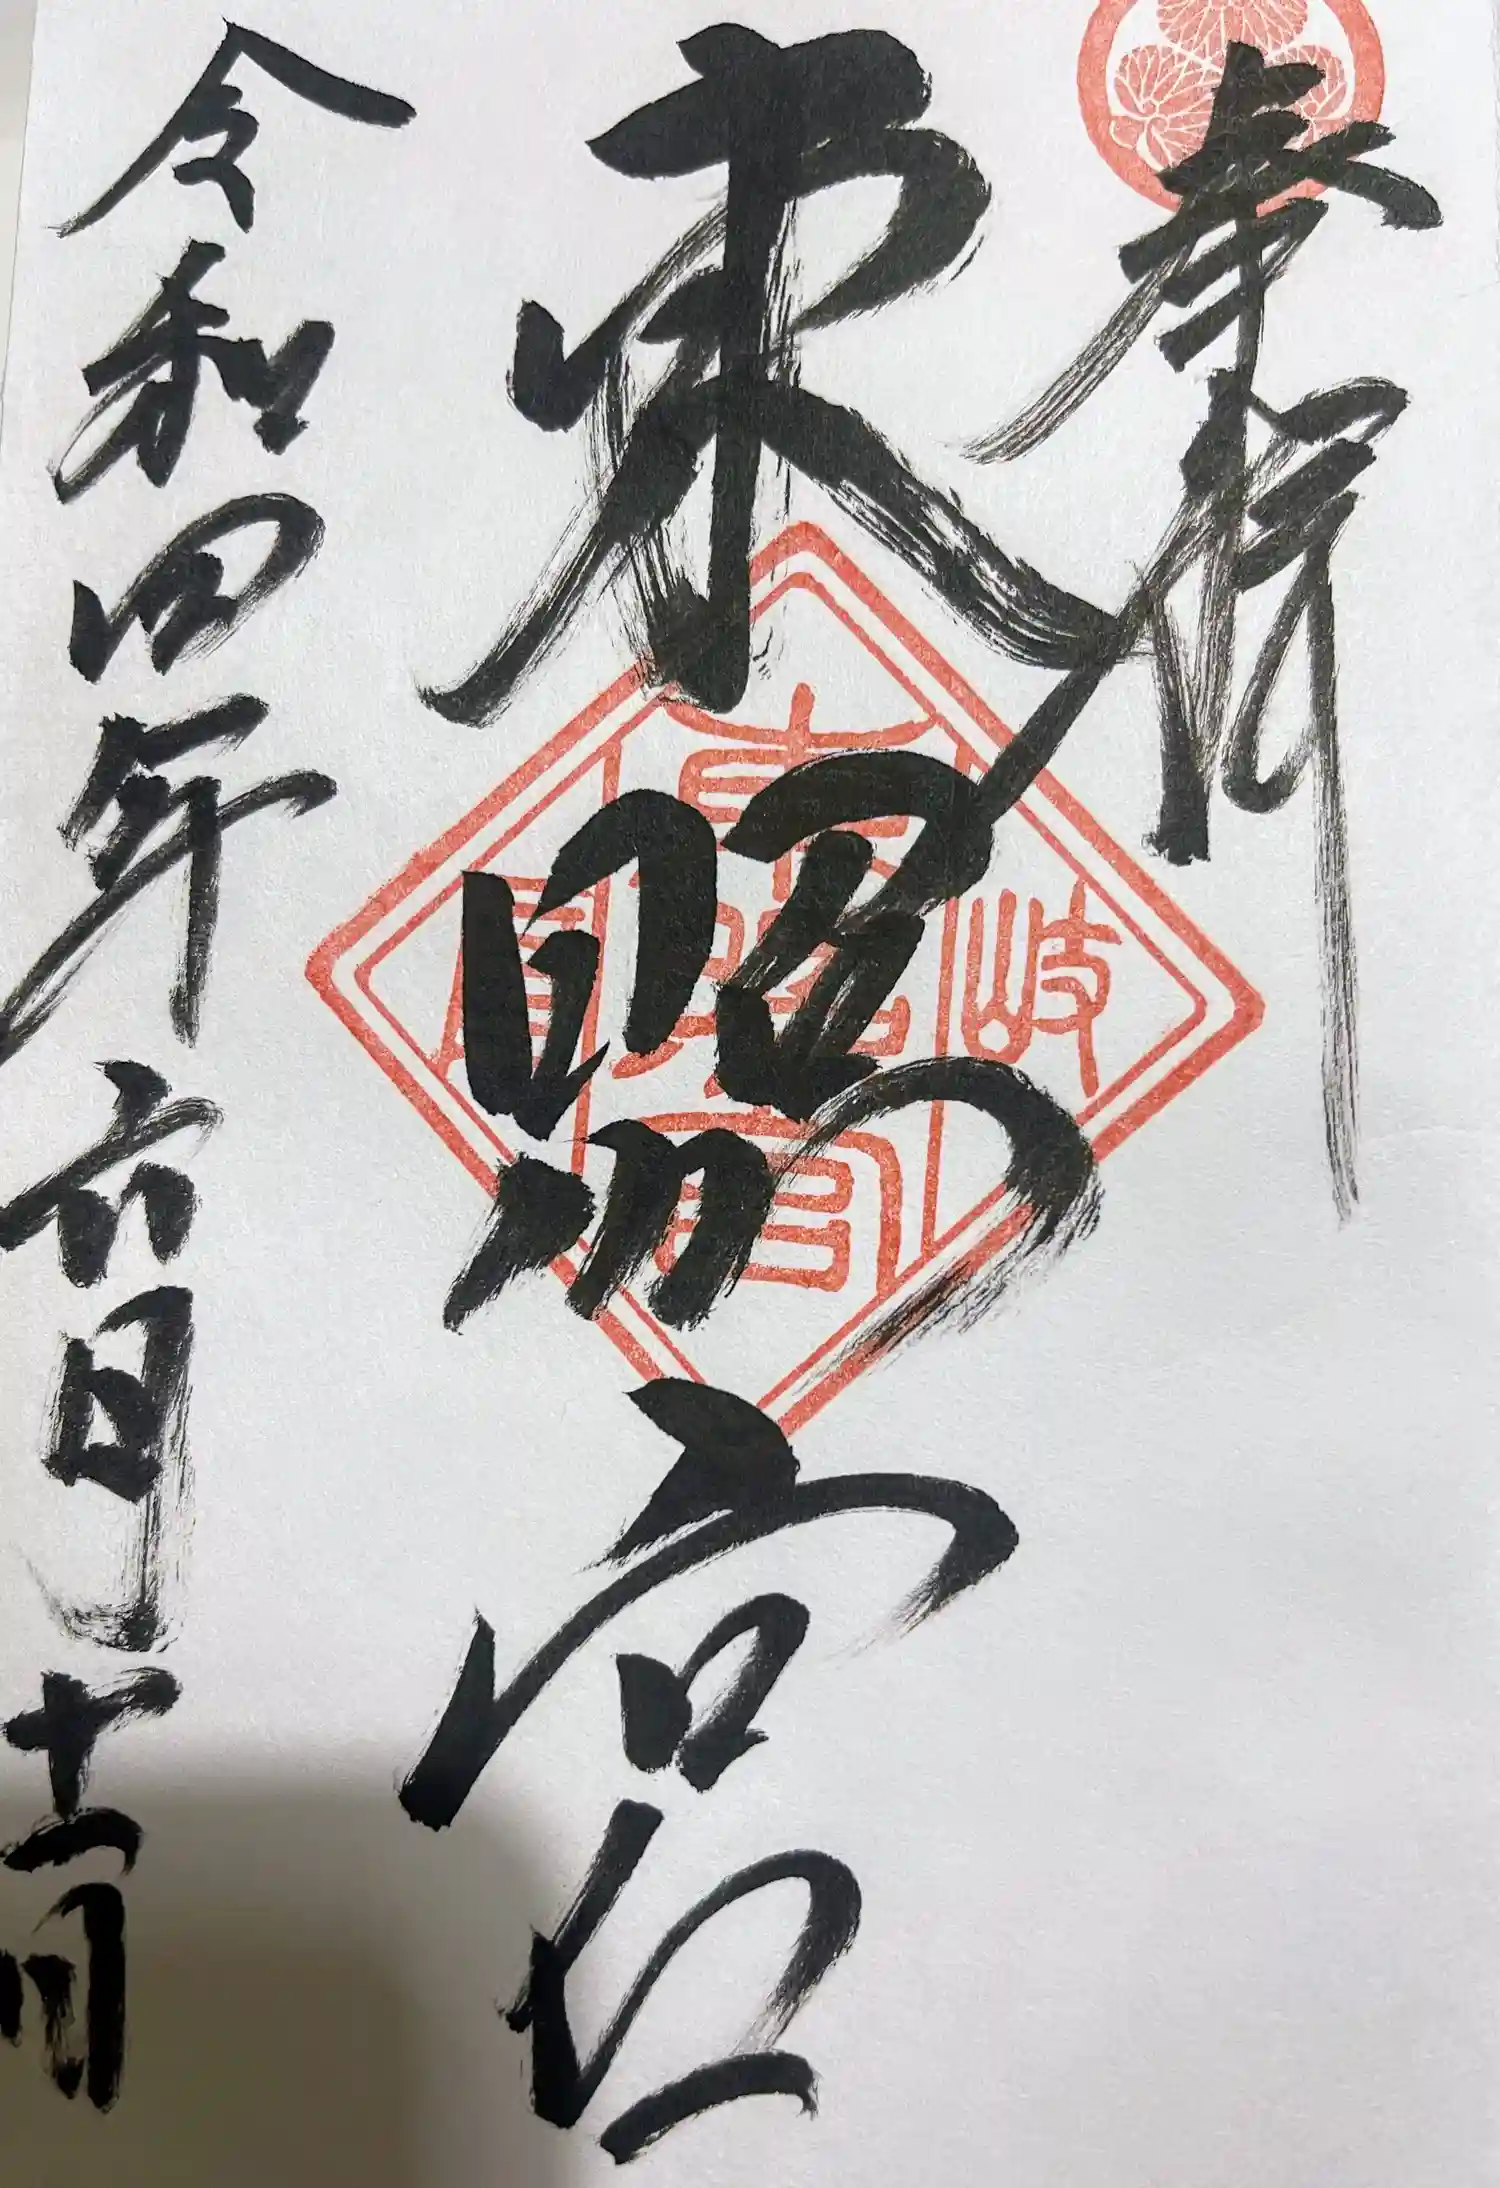 奉拝
東照宮
令和四年六月十一日
岐
東照宮